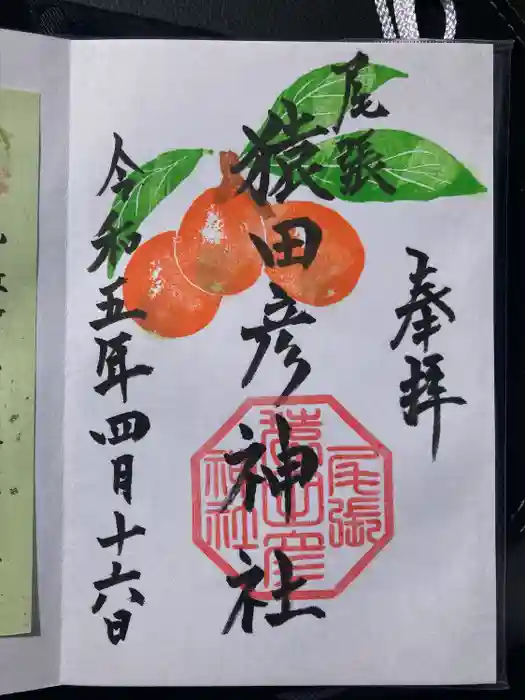 奉拝
尾張
猿田彦神社
令和五年四月十六日
尾張
猿田彦
神社